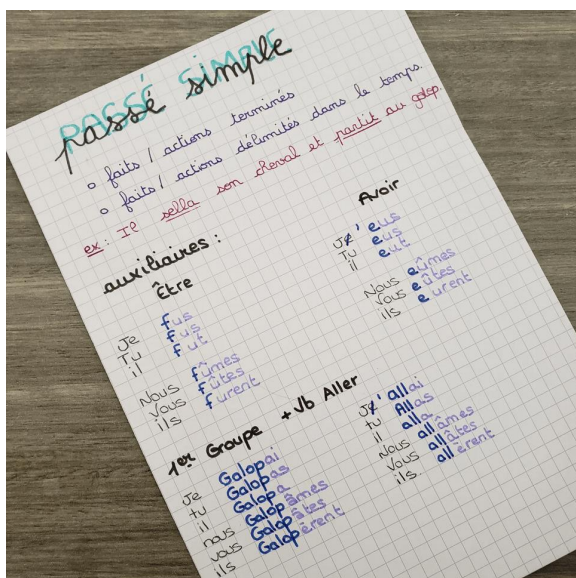 PASSÉ SIMPLE
passé simple
o faits / actions terminés
o faits / actions délimités dans le temps.
ex: Il sella son cheval et partit au galop.
auxiliaires :
Être
Je fus
Tu fus
il fut
Nous fûmes
Vous fûtes
ils furent
Avoir
J' eus
Tu eus
il eut
Nous eûmes
Vous eûtes
ils eurent
1er Groupe + Vb Aller
Je Galopai
tu Galopas
il Galopa
nous Galopâmes
vous Galopâtes
ils Galopèrent
J' allai
tu Allas
il alla
Nous allâmes
Vous allâtes
ils. allèrent